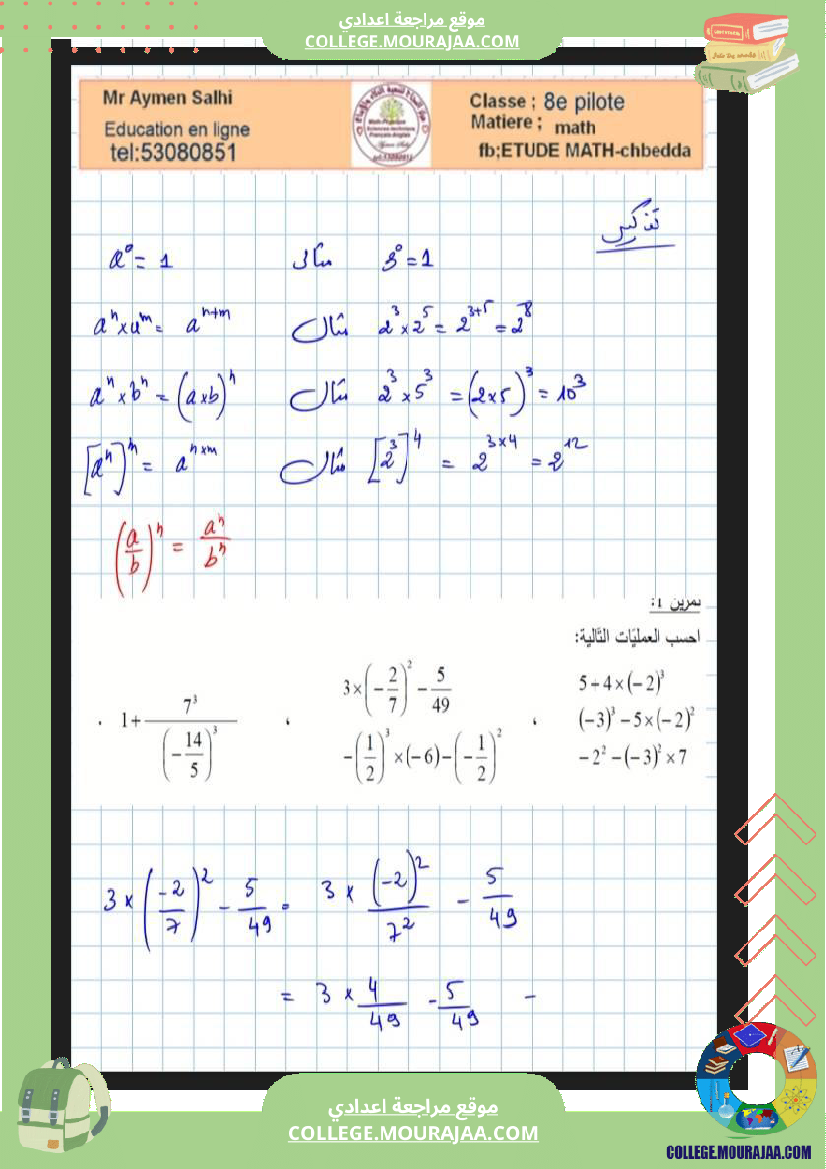 موقع مراجعة اعدادي
COLLEGE.MOURAJAA.COM
Mr Aymen Salhi
Education en ligne
tel:53080851
Classe ; 8e pilote
Matiere ; math
fb;ETUDE MATH-chbedda
تذكير
a⁰ = 1 مثال 3⁰ = 1
aⁿ × aᵐ = aⁿ⁺ᵐ مثال 2³ × 2⁵ = 2³⁺⁵ = 2⁸
aⁿ × bⁿ = (a×b)ⁿ مثال 2³ × 5³ = (2×5)³ = 10³
[aⁿ]ᵐ = aⁿˣᵐ مثال [2³]⁴ = 2³ˣ⁴ = 2¹²
(a/b)ⁿ = aⁿ/bⁿ
تمرين 1:
احسب العمليّات التّالية:
5-4×(-2)³
(-3)³-5×(-2)²
-2²-(-3)²×7
،
3×(-2/7)²-5/49
-(1/2)³×(-6)-(-1/2)²
،
1+7³/(-14/5)³
.
3 × (-2/7)² - 5/49 = 3 × (-2)²/7² - 5/49
= 3 × 4/49 - 5/49 -
موقع مراجعة اعدادي
COLLEGE.MOURAJAA.COM
COLLEGE.MOURAJAA.COM